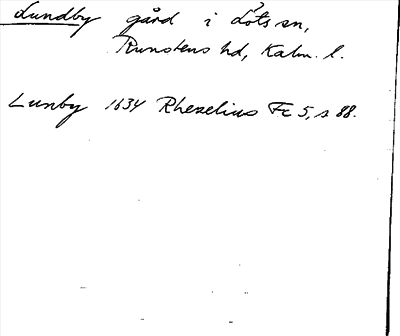 Lundby gård i Löts sn,
Runstens hd, Kalm. l.
Lunby 1634 Rhezelius Fc 5, s 88.